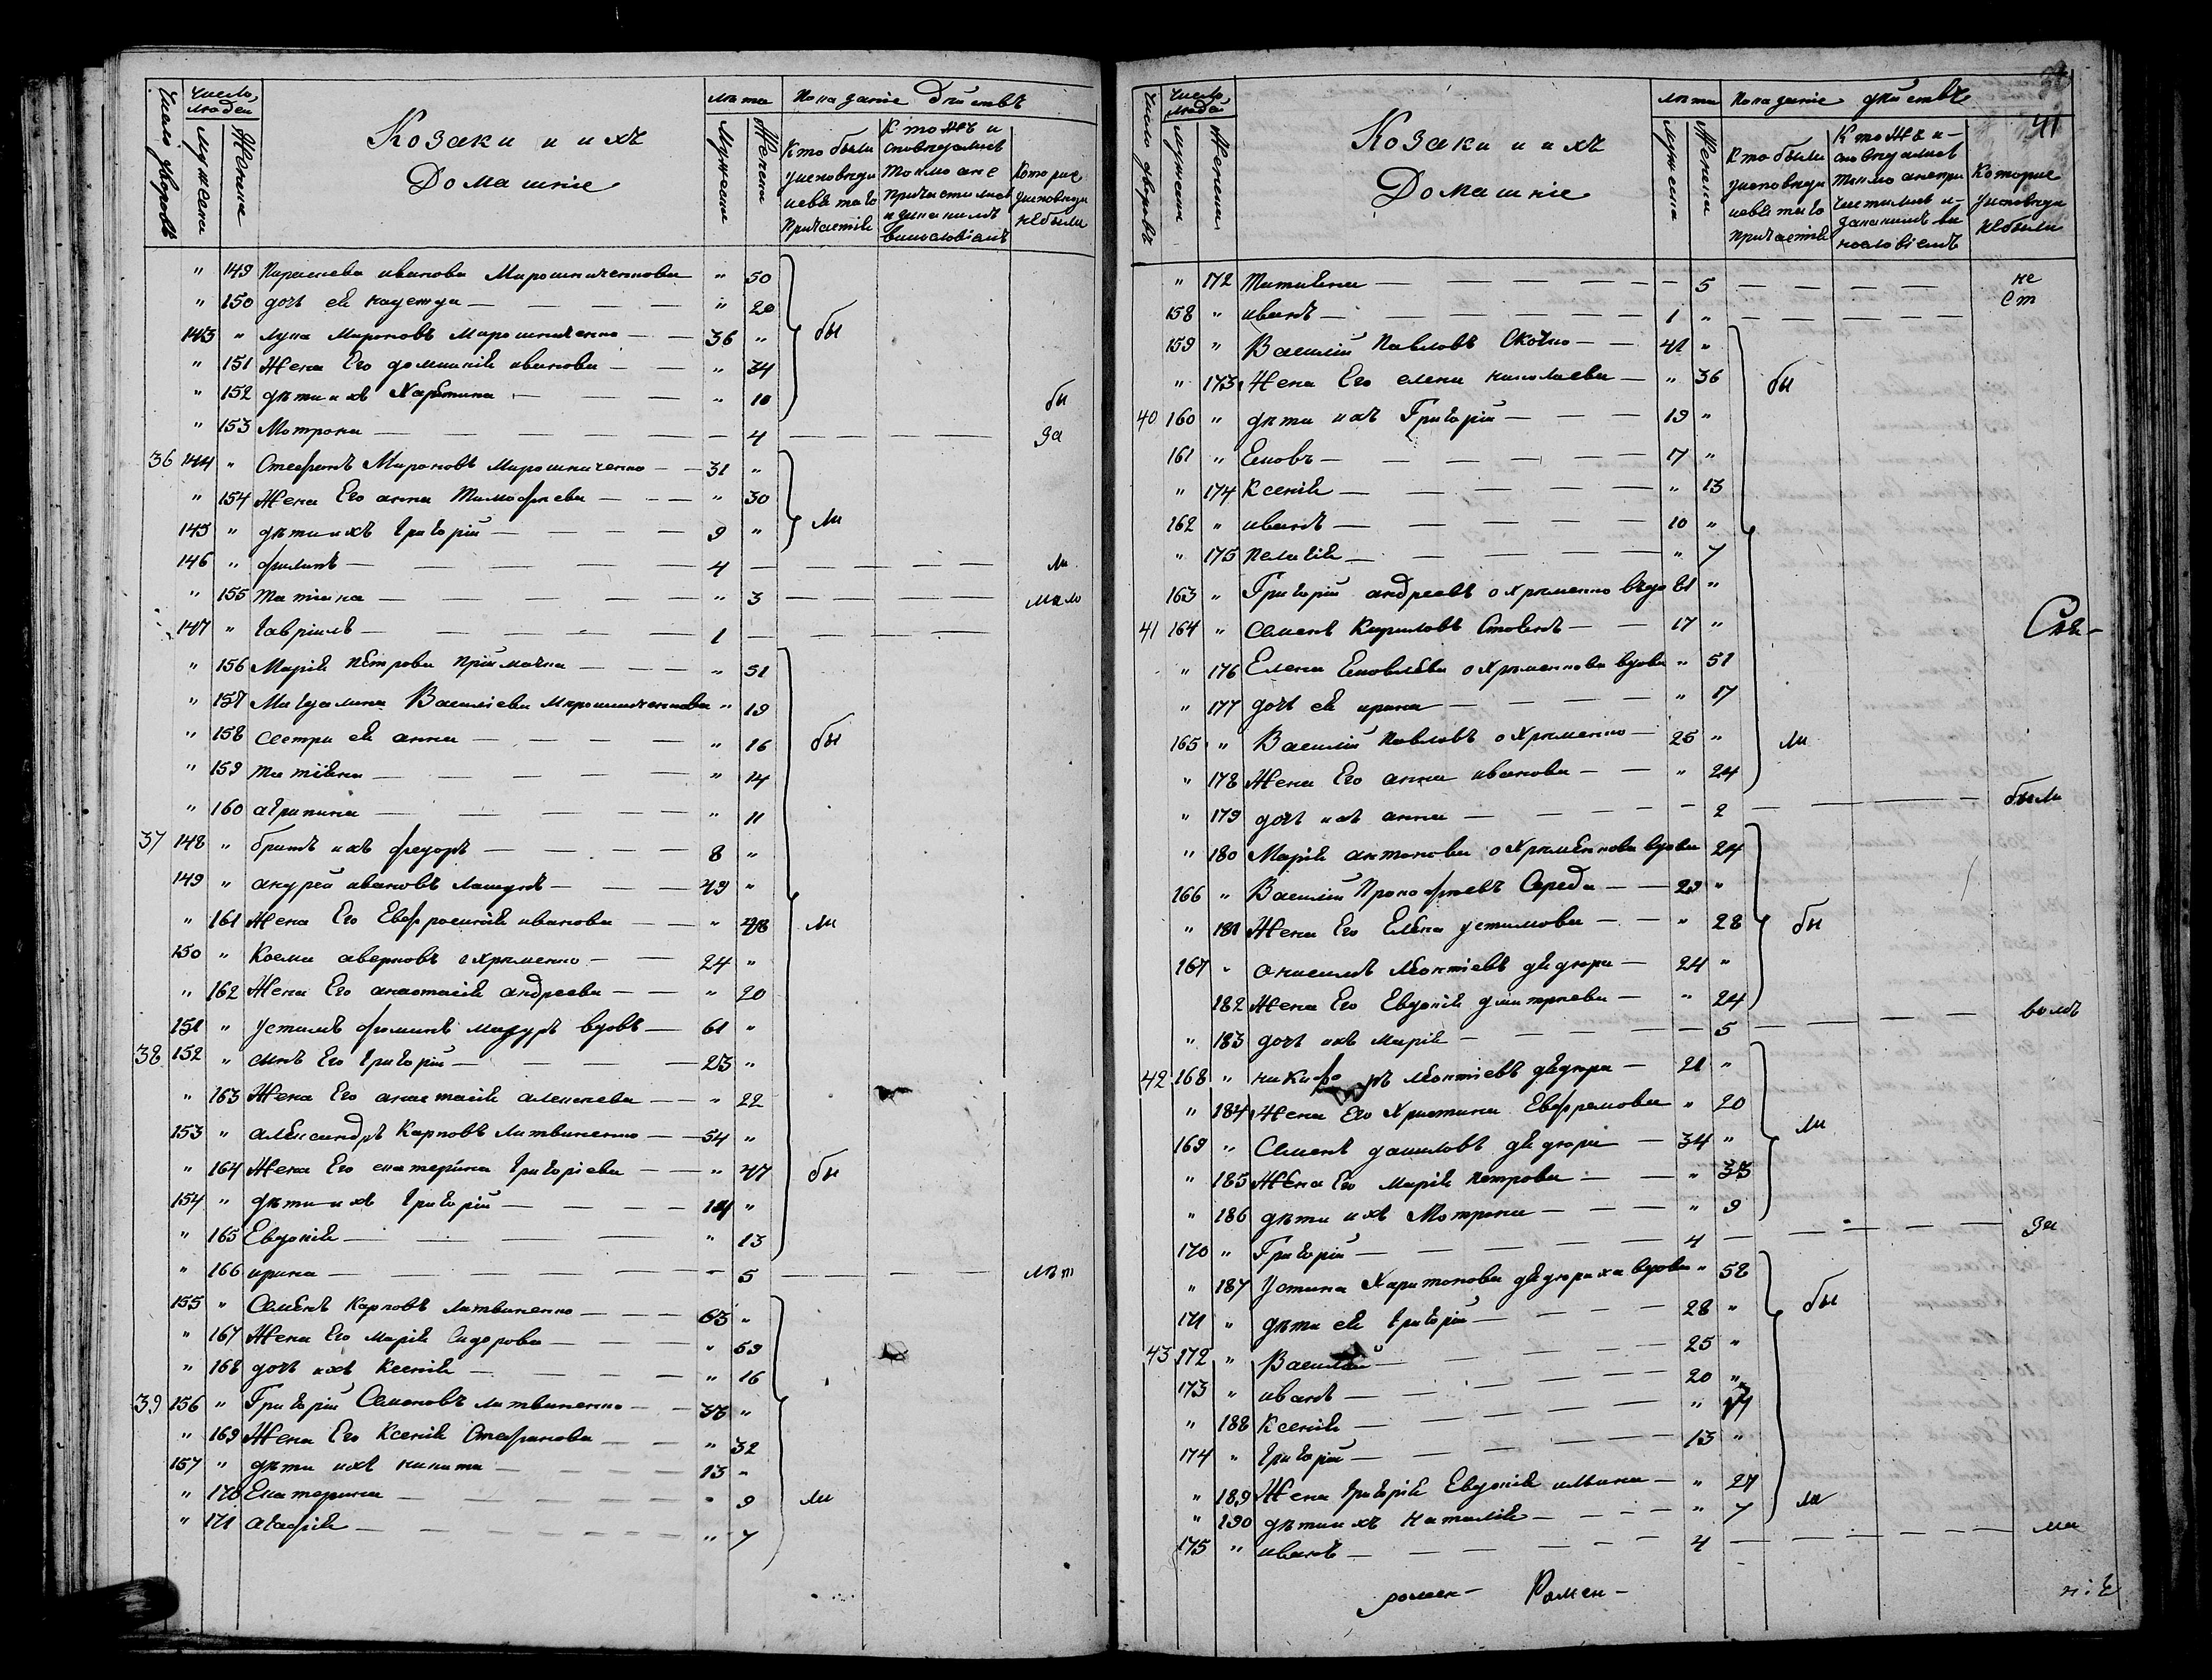 Число дворовъ
Число людей
Мужеска
Женска
Козаки и ихъ
Домашніе
лѣта
Мужеска
Женска
Показаніе действъ
Кто были
у исповеди
и святаго
Причастія
Которие
у исповеди
не были
" 149 Параскева иванова Мирошниченкова " 50
" 150 дочь ея надежда — " 20
143 " лука Мироновъ Мирошниченко — 36 " бы
" 151 Жена Его домникія иванова — " 34
" 152 дѣти ихъ Харитина — " 10 бы
" 153 Мотрона — 4 — за
36 144 " Стефанъ Мироновъ Мирошниченко — 31 "
" 154 Жена Его анна Тимофеева — " 30
145 " дѣти ихъ григорій — 9 " ли
146 " филипъ — 4 — ли
" 155 татіана — " 3 — мало
147 " гавріилъ — 1 —
" 156 Марія Петрова Приймачка — " 51
" 157 Магдалина Василіева Мирошниченкова " 19
" 158 сестри ея анна — " 16 бы
" 159 татіана — " 14
" 160 агрипина — " 11
37 148 " братъ ихъ федоръ — 8 "
149 " андрей ивановъ Лашунъ — 49 "
" 161 Жена Его Евфросинія иванова — " 48 ли
150 " Косма аверковъ охрименко — 24 "
" 162 Жена Его анастасія андреева — " 20
151 " устимъ фоминъ мазуръ вдовъ — 61 "
38 152 " синъ Его григорій — 23 "
" 163 Жена Его анастасія алексеева — " 22
153 " александръ Карповъ Литвиненко — 54 "
" 164 Жена Его екатерина григоріева — " 47 бы
154 " дѣти ихъ григорій — 14 "
" 165 Евдокія — " 13
" 166 ирина — " 5 — лѣт
155 " Семенъ карповъ Литвиненко — 63 "
" 167 Жена Его Марія Сидорова — " 59
" 168 дочь ихъ Ксенія — " 16
39 156 " Григорій Семеновъ литвиненко — 38 "
" 169 Жена Его Ксенія Стефанова — " 32
157 " дѣти ихъ никита — 13 "
" 170 Екатерина — " 9 ли
" 171 агафія — " 7
41
Число дворовъ
Число людей
Мужеска
Женска
Козаки и ихъ
Домашніе
лѣта
Мужеска
Женска
Показаніе действъ
Кто были
у исповеди
и святаго
причастія
Которие
у исповеди
не были
" 172 Татіана — 5 — не
158 " иванъ — 1 " — ст
159 " Василій Павловъ Скочко — 41 "
" 173 Жена Его елена николаева — " 36 бы
40 160 " дѣти ихъ Григорій — 19 "
161 " Еяковъ — 17 "
" 174 Ксенія — " 13
162 " иванъ — 10 "
" 175 Пелагія — " 7
163 " Григорій андреевъ охрименко вдовъ 61 "
41 164 " Семенъ Кириловъ Стовенъ — 17 "
" 176 Елена Еяковлева охрименкова вдова " 51
" 177 дочь ея ирина — " 17
165 " Василій павловъ охрименко — 25 " ли
" 178 Жена Его анна иванова — " 24
" 179 дочь ихъ анна — 2 — были
" 180 Марія антонова охрименкова вдова 24
166 " Василій Прокофіевъ Середа — 29 "
" 181 Жена Его Елена устимова — " 28 бы
167 " онисимъ леонтіевъ дядюра — 24 "
182 Жена Его Евдокія дмитріева — " 24
" 183 дочь ихъ Марія — 5 —
42 168 " никифоръ леонтіевъ дядюра — 21 "
" 184 Жена Его Христина Евфремова " 20 ли
169 " Семенъ даниловъ дядюра — 34 "
" 185 Жена Его Марія петрова — " 33
" 186 дѣти ихъ Мотрона — " 9
170 " Григорій — 4 — за
" 187 Устина Харитонова дядюриха вдова " 58
171 " дѣти ея григорій — 28 " бы
43 172 " Василій — 25 "
173 " иванъ — 20 "
" 188 Ксенія — "
174 " григорій — 13 "
" 189 Жена григорія Евдокія илвина — " 27
" 190 дѣти ихъ наталія — " 7 ли
175 " иванъ — 4 — ма
ромен — Ромен —